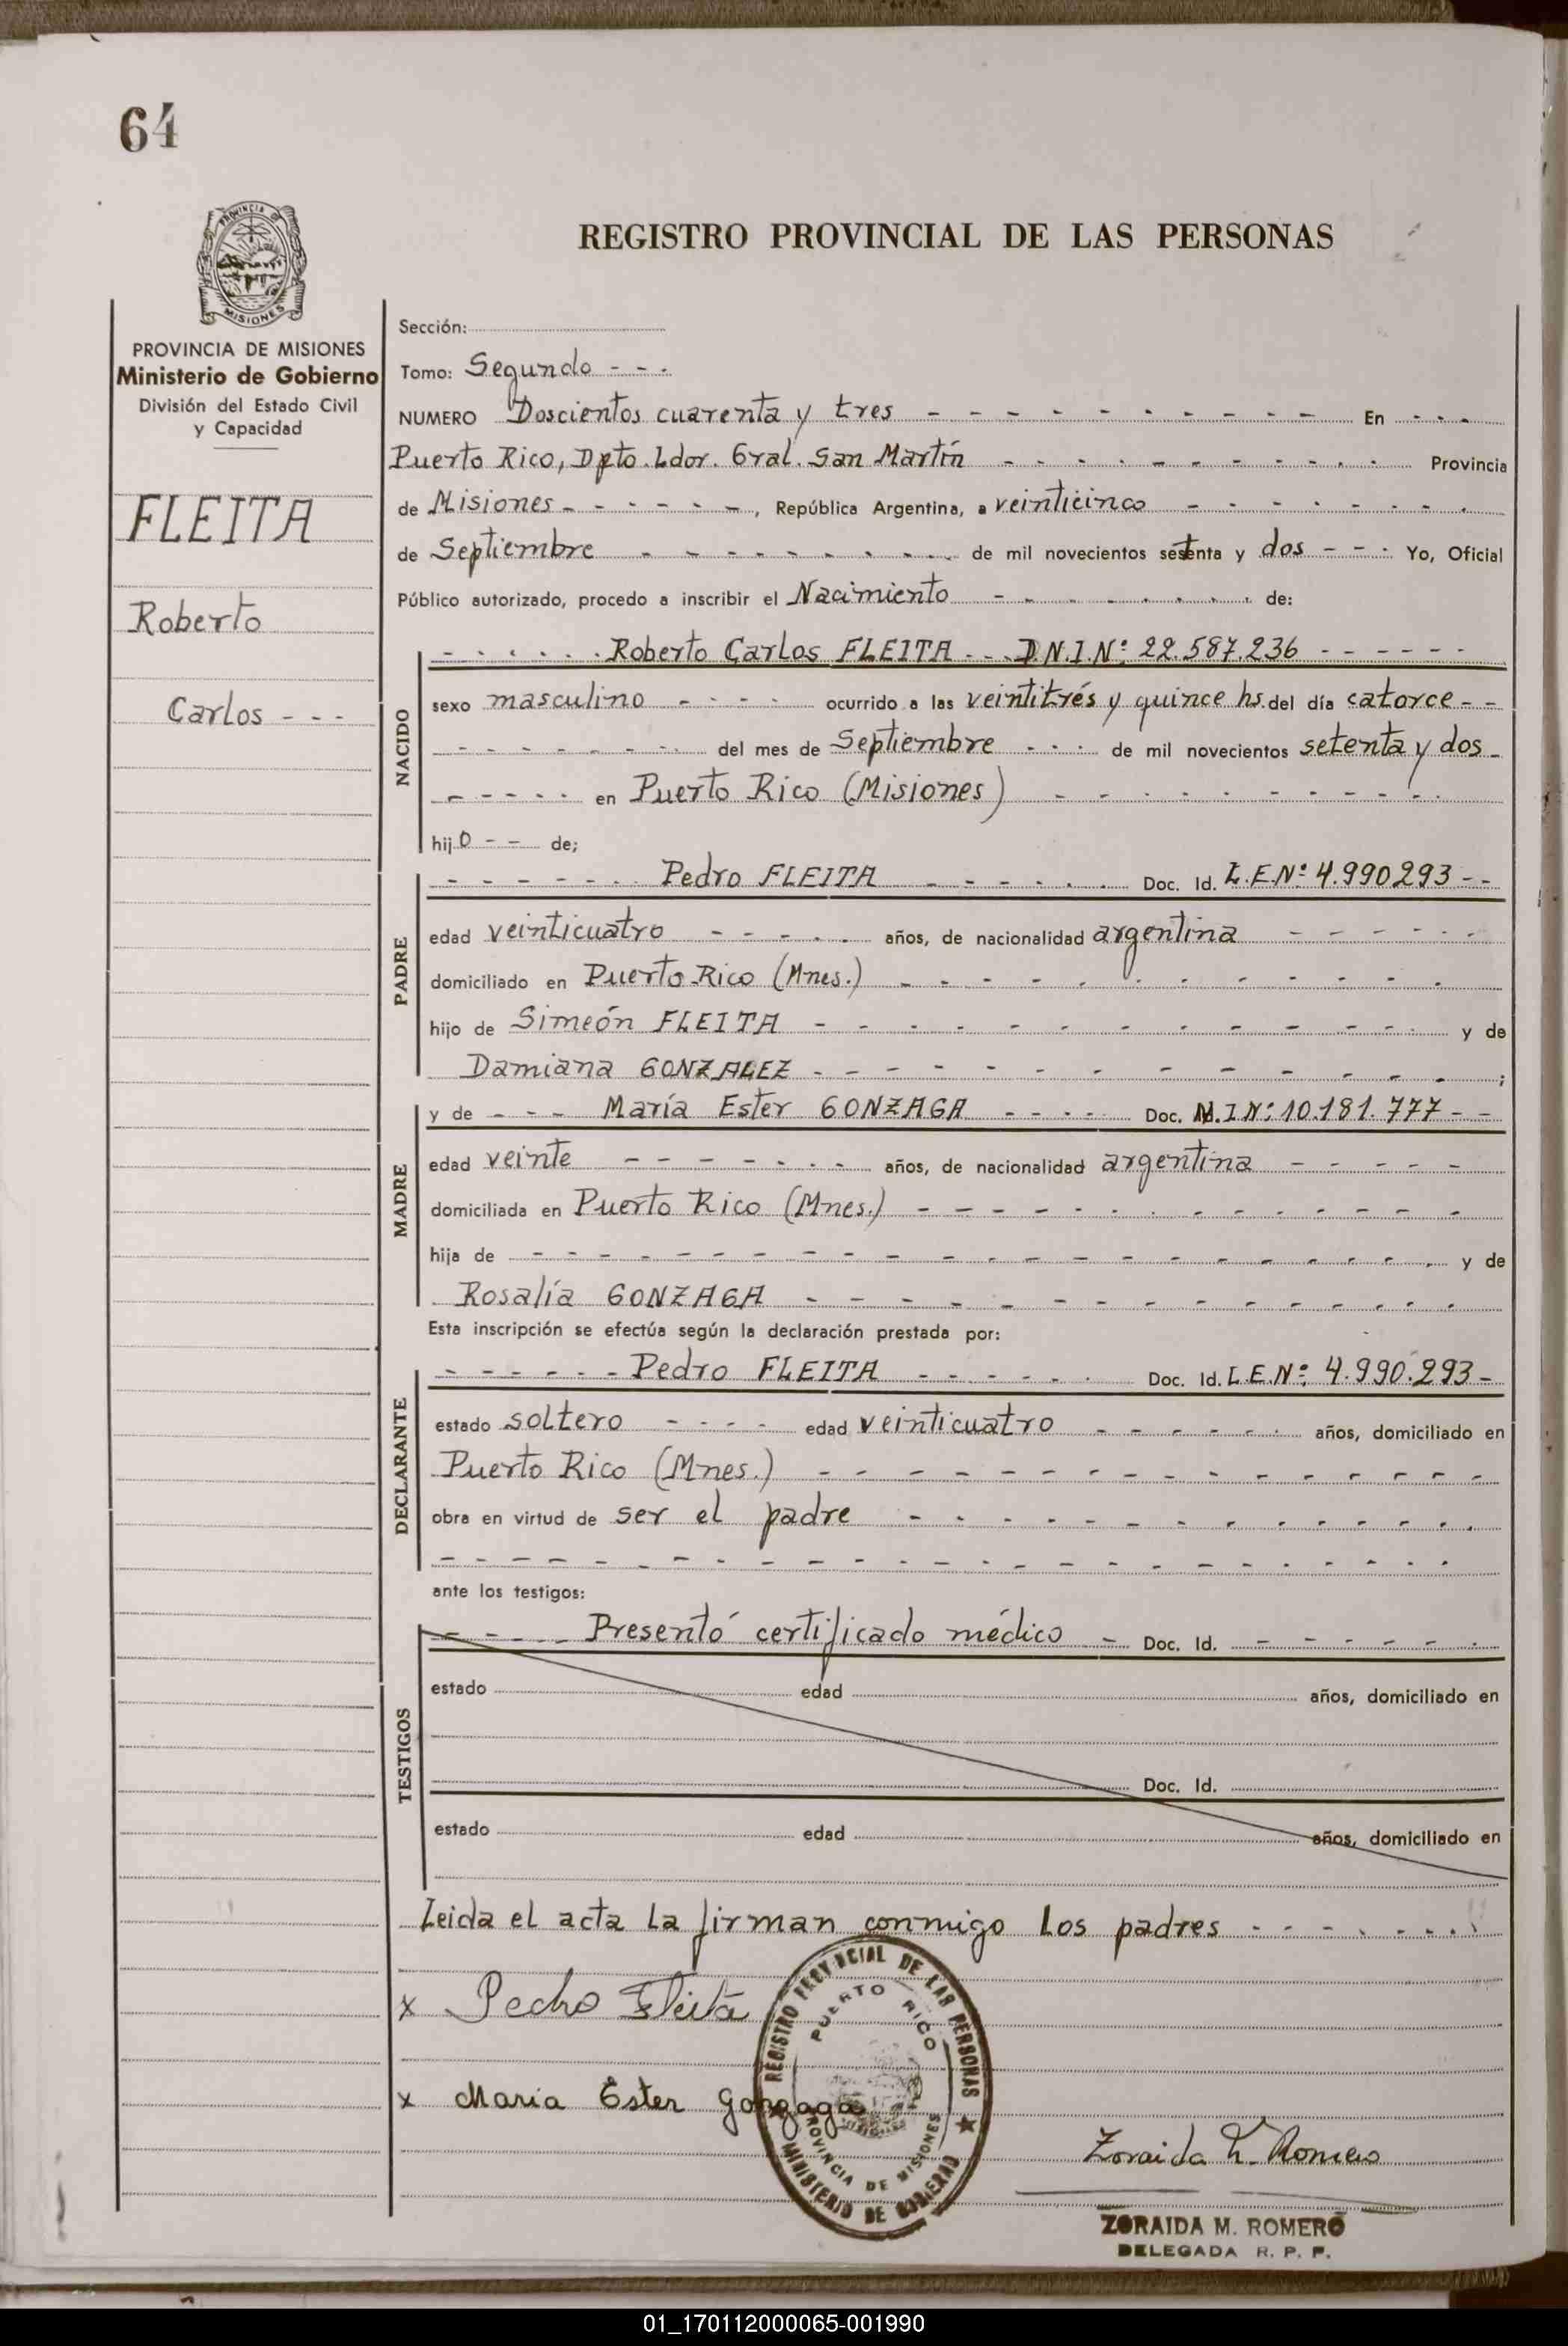 64
PROVINCIA DE
MISIONES
REGISTRO PROVINCIAL DE LAS PERSONAS
PROVINCIA DE MISIONES
Ministerio de Gobierno
División del Estado Civil
y Capacidad
FLEITA
Roberto
Carlos - - -
Sección:
Tomo: Segundo - - -
NUMERO Doscientos cuarenta y tres - - - - - - - - - - En - - -
Puerto Rico, Dpto. Ldor. Gral. San Martín - - - - - - - - - - Provincia
de Misiones - - - - - -, República Argentina, a veinticinco - - - - - - -
de Septiembre - - - - - - - - - de mil novecientos setenta y dos - - - Yo, Oficial
Público autorizado, procedo a inscribir el Nacimiento - - - - - - - de:
NACIDO
- - - - - - Roberto Carlos FLEITA - - - D.N.I.Nº: 22.587.236 - - - - - -
sexo masculino - - - - - ocurrido a las veintitrés y quince hs. del día catorce - -
- - - - - - - - del mes de Septiembre - - - - de mil novecientos setenta y dos -
- - - - - - en Puerto Rico (Misiones) - - - - - - - - - - -
hijo - - de;
PADRE
- - - - - - - Pedro FLEITA - - - - - - Doc. Id. L.E.Nº: 4.990293 - -
edad veinticuatro - - - - - - años, de nacionalidad argentina - - - - - -
domiciliado en Puerto Rico (Mnes.) - - - - - - - - - - - -
hijo de Simeón FLEITA - - - - - - - - - - - - y de
Damiana GONZALEZ - - - - - - - - - - - - - ;
MADRE
y de - - - María Ester GONZAGA - - - - - Doc. M.I Nº: 10.181.777 - -
edad veinte - - - - - - - - años, de nacionalidad argentina - - - - -
domiciliada en Puerto Rico (Mnes.) - - - - - - - - - - - - -
hija de - - - - - - - - - - - - - - - - - - y de
Rosalía GONZAGA - - - - - - - - - - - - - -
Esta inscripción se efectúa según la declaración prestada por:
DECLARANTE
- - - - - - Pedro FLEITA - - - - - - Doc. Id. L.E.Nº: 4.990.293 -
estado soltero - - - - - edad veinticuatro - - - - - - años, domiciliado en
Puerto Rico (Mnes.) - - - - - - - - - - - - - - -
obra en virtud de ser el padre - - - - - - - - - - - - -
- - - - - - - - - - - - - - - - - - - - - - - -
ante los testigos:
TESTIGOS
- - - - - Presentó certificado médico - Doc. Id. - - - - - -
estado edad años, domiciliado en
Doc. Id.
estado edad años, domiciliado en
Leida el acta la firman conmigo los padres - - - - - - - -
x Pedro Fleita
x Maria Ester Gonzaga
REGISTRO PROVINCIAL DE LAS PERSONAS
PUERTO RICO
PROVINCIA DE MISIONES
MINISTERIO DE GOBIERNO
Zoraida M. Romero
ZORAIDA M. ROMERO
DELEGADA R. P. P.
01_170112000065-001990